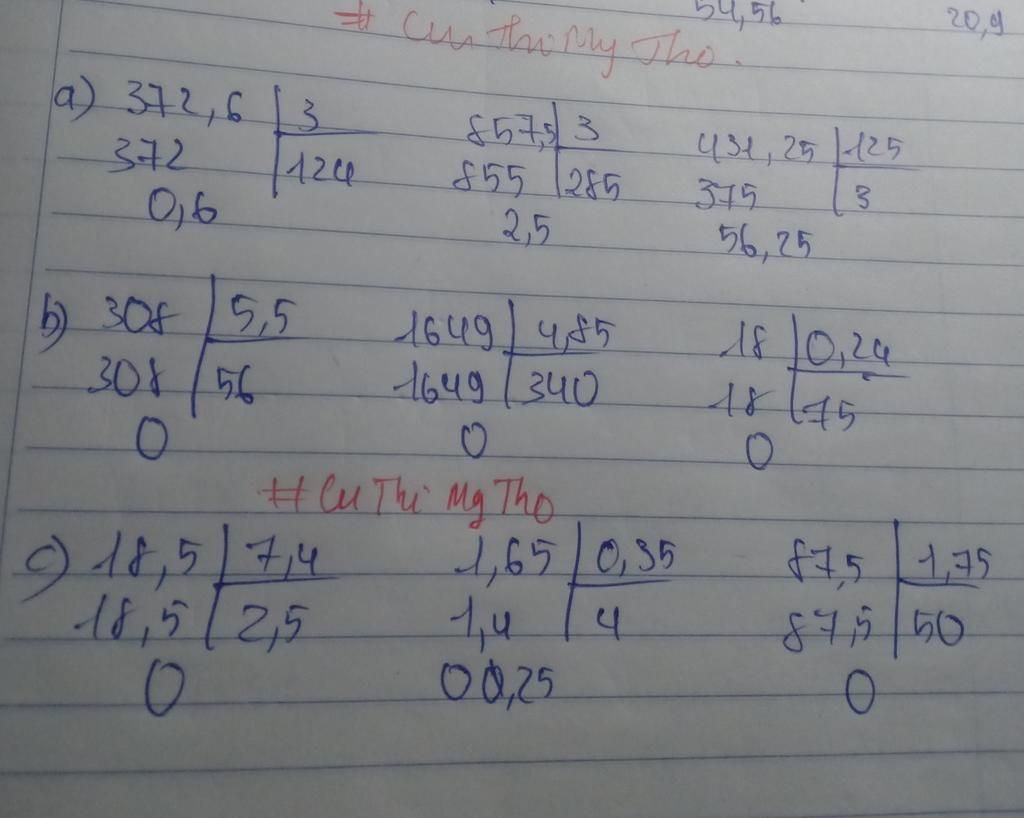 54,56 20,9
# Cu Thi My Tho.
a) 372,6 3 857,5 3 431,25 125
372 124 855 285 375 3
0,6 2,5 56,25
b) 308 5,5 1649 4,85 18 0,24
308 56 1649 340 18 75
0 0 0
# Cu Thi My Tho
c) 18,5 7,4 1,65 0,35 87,5 1,75
18,5 2,5 1,4 4 87,5 50
0 00,25 0